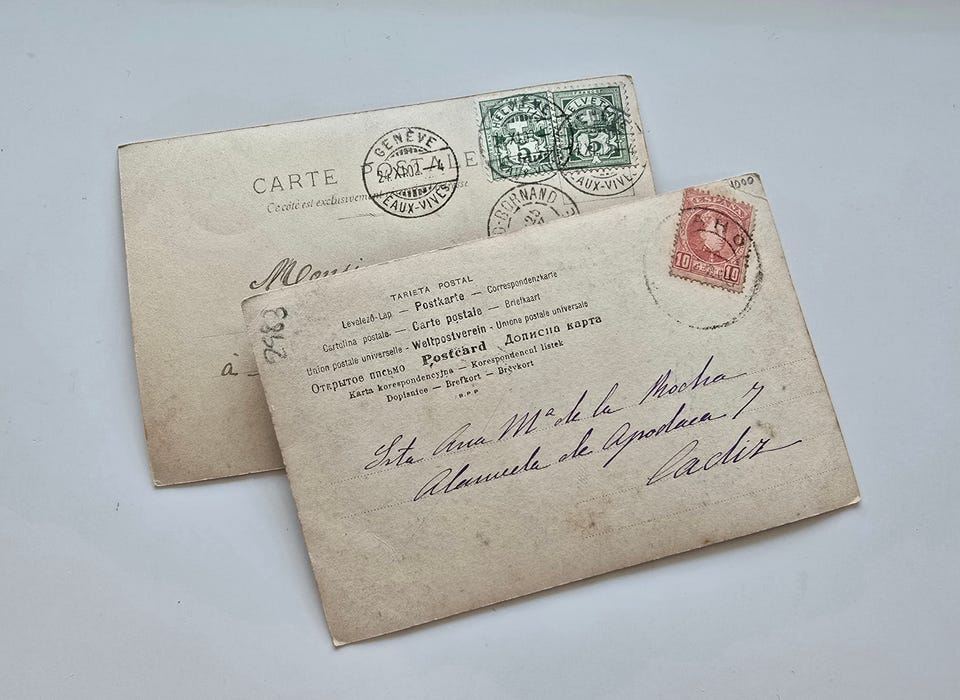 CARTE POSTALE
Ce côté est exclusivement
GENÈVE
24.XI.02.-4
EAUX-VIVES
HELVETIA
5
HELVETIA
5
EAUX-VIVES
D-BORNAND
23
Monsi
à
1000
ESPAÑA
10
10
2983
TARJETA POSTAL
Levelező-Lap — Postkarte — Correspondenzkarte
Cartolina postale — Carte postale — Briefkaart
Union postale universelle - Weltpostverein - Unione postale universale
Открытое письмо Postcard Дописна карта
Karta korespondencyjna — Korespondencni listek
Dopisnice — Brefkort — Brevkort
B.P.P
Srta Ana Mª de la Rocha
Alameda de Apodaca 7
Cadiz